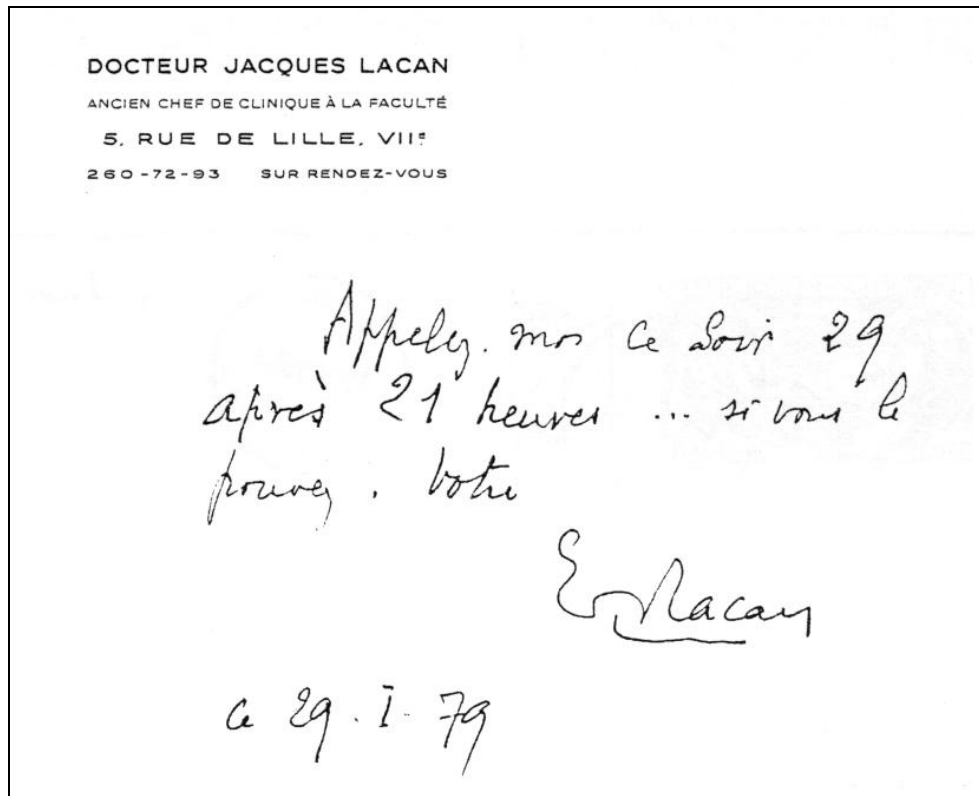 DOCTEUR JACQUES LACAN
ANCIEN CHEF DE CLINIQUE À LA FACULTÉ
5, RUE DE LILLE, VIIe
260-72-93 SUR RENDEZ-VOUS
Appelez. moi ce soir 29
après 21 heures ... si vous le
pouvez. Votre
Lacan
ce 29. I. 79